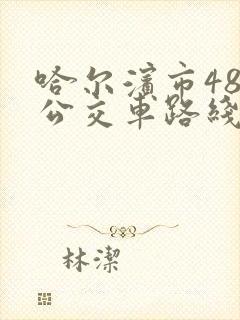 哈尔濱市48
公交車路綫
林潔